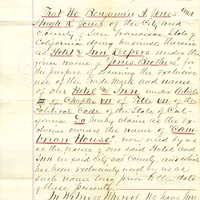 That We Benjamin A. Jones and
Hugh R. Jones of the City and
County of San Francisco State of
California doing business therein
as Hotel & Inn Keepers under the
firm name of Jones Brothers, for
the purpose of securing the exclusive
use of the Trade Mark and name
of our Hotel and Inn under Article
III of Chapter VII of Title VII of the
Political Code of the State of Cali-
fornia Do hereby claim as the ex-
clusive owners the name of "Cam-
brian House" now used by us
as the name of our said Hotel and
Inn in said City and County, and which
has been exclusively used by us as
such name long prior to the date
of these presents.
In Witness Whereof We have here